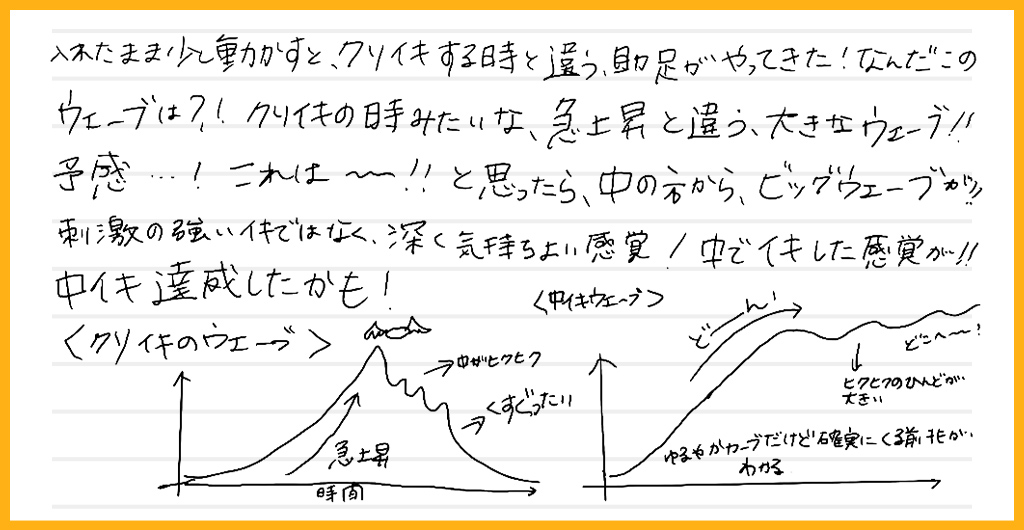 入れたまま少し動かすと、クリイキする時と違う、助走がやってきた！なんだこの
ウェーブは？！クリイキの時みたいな、急上昇と違う、大きなウェーブ!!
予感…！これは〜〜!!と思ったら、中の方から、ビッグウェーブが!!
刺激の強いイキではなく、深く気持ちよい感覚！中でイキした感覚が!!
中イキ達成したかも！
〈クリイキのウェーブ〉
急上昇
中がヒクヒク
くすぐったい
時間
〈中イキウェーブ〉
どーん！
どこへ〜〜！
ヒクヒクのひんどが
大きい
ゆるやかカーブだけど確実にくる前兆が
わかる